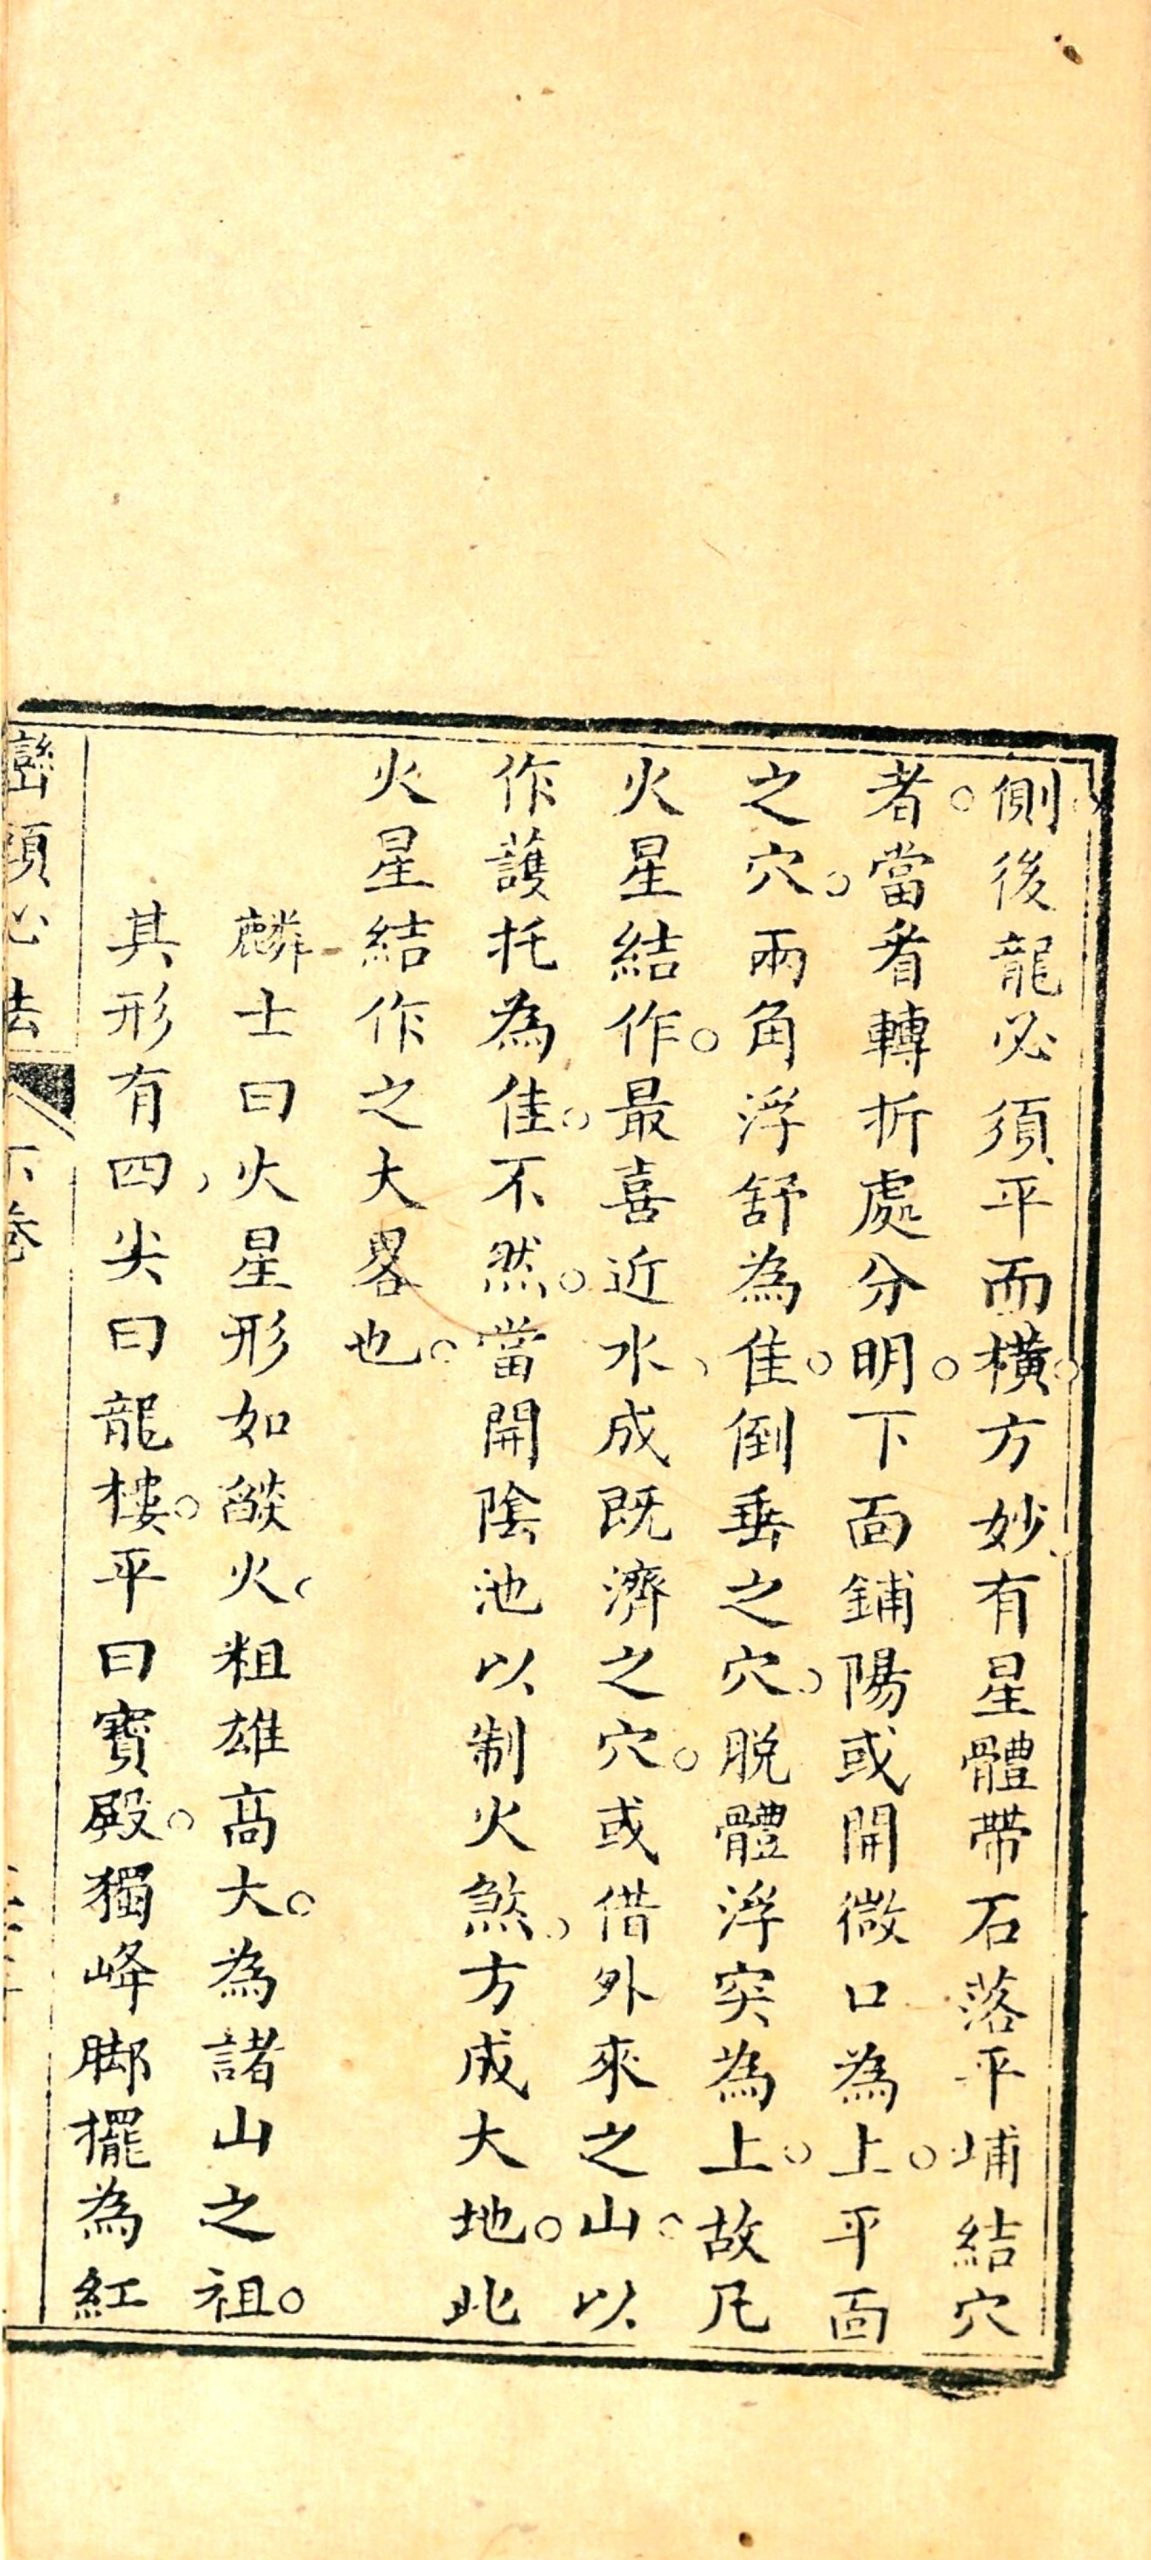 側後龍必須平而橫。方妙有星體帶石落平埔結穴
者。當看轉折處分明。下面鋪陽或開微口為上。平面
之穴。兩角浮舒為佳。倒垂之穴、脫體浮突為上。故凡
火星結作。最喜近水、成既濟之穴。或借外來之山。以
作護托為佳。不然。當開陰池以制火煞、方成大地。此
火星結作之大畧也。
麟士曰火星形如燄火、粗雄高大。為諸山之祖。
其形有四、尖曰龍樓。平曰寶殿。獨峰脚擺為紅
巒頭心法 下卷